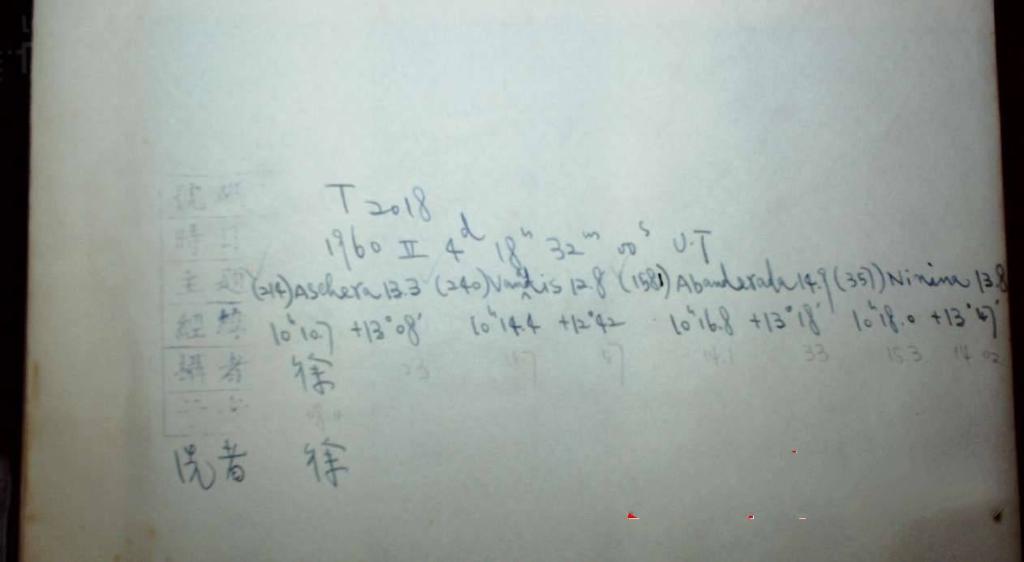 T 2018
1960 II 4ᵈ 18ʰ 32ᵐ 00ˢ U.T
主題 (214) Aschera 13.3 (240) Vanadis 12.8 (1581) Abanderada 14.9 (357) Ninina 13.8
經緯 10ʰ10.7 +13°08′ 10ʰ14.4 +12°42 10ʰ16.8 +13°18′ 10ʰ18.0 +13°47′
攝者 徐 23 47 47 14.1 33 15.3 14 02
洗者 徐